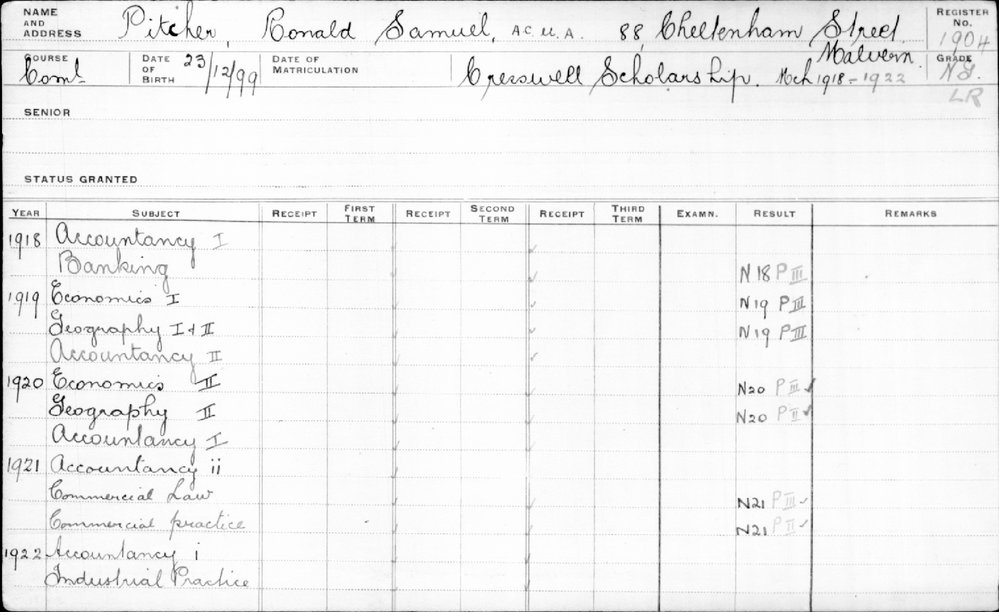 NAME AND ADDRESS Pitcher, Ronald Samuel, A.C.U.A. 88, Cheltenham Street, Malvern. REGISTER No. 1904
COURSE Coml DATE OF BIRTH 23/12/99 DATE OF MATRICULATION Cresswell Scholarship. Mch 1918-1922 GRADE N.G.
LR
SENIOR
STATUS GRANTED
YEAR SUBJECT RECEIPT FIRST TERM RECEIPT SECOND TERM RECEIPT THIRD TERM EXAMN. RESULT REMARKS
1918 Accountancy I ✓
Banking ✓ ✓ N18 P III
1919 Economics I ✓ N19 P III
Geography I + II ✓ N19 P III
Accountancy II ✓
1920 Economics II ✓ ✓ N20 P III ✓
Geography II ✓ ✓ N20 P II ✓
Accountancy I ✓ ✓
1921 Accountancy ii ✓
Commercial Law ✓ ✓ N21 P III ✓
Commercial practice ✓ ✓ N21 P II ✓
1922 Accountancy i ✓ ✓
Industrial Practice ✓ ✓